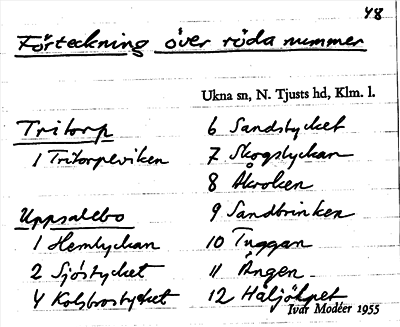 48
Förteckning över röda nummer
Ukna sn, N. Tjusts hd, Klm. l.
Tritorp
1 Tritorpeviken
Uppsalebo
1 Hemlyckan
2 Sjöstycket
4 Kolsbrostycket
6 Sandstycket
7 Skogslyckan
8 Åkroken
9 Sandbrinken
10 Tuggan
11 Ängen
12 Häljöhpet
Ivar Modéer 1955